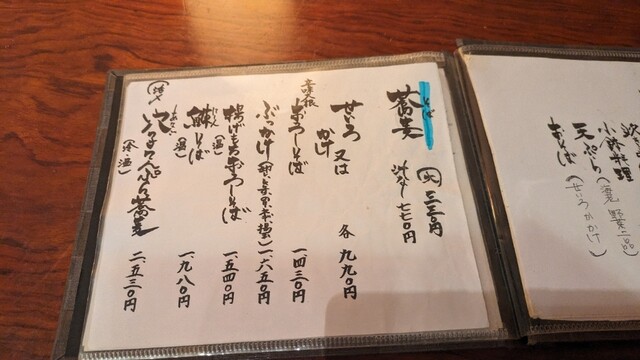 蕎麦
そば
大 三三〇円
少なめ 七七〇円
せいろ 又は
かけ
各 九九〇円
おろしそば
一.四三〇円
ぶっかけ
一.六五〇円
揚げもちおろしそば
(温)
一.五四〇円
鰊そば
にしん
(温)
一.九八〇円
穴子天ぷら蕎麦
(冷温)
二.五三〇円
小鉢
料理
天ぷら
(海老 野菜二品)
おそば
(せいろ かかけ)